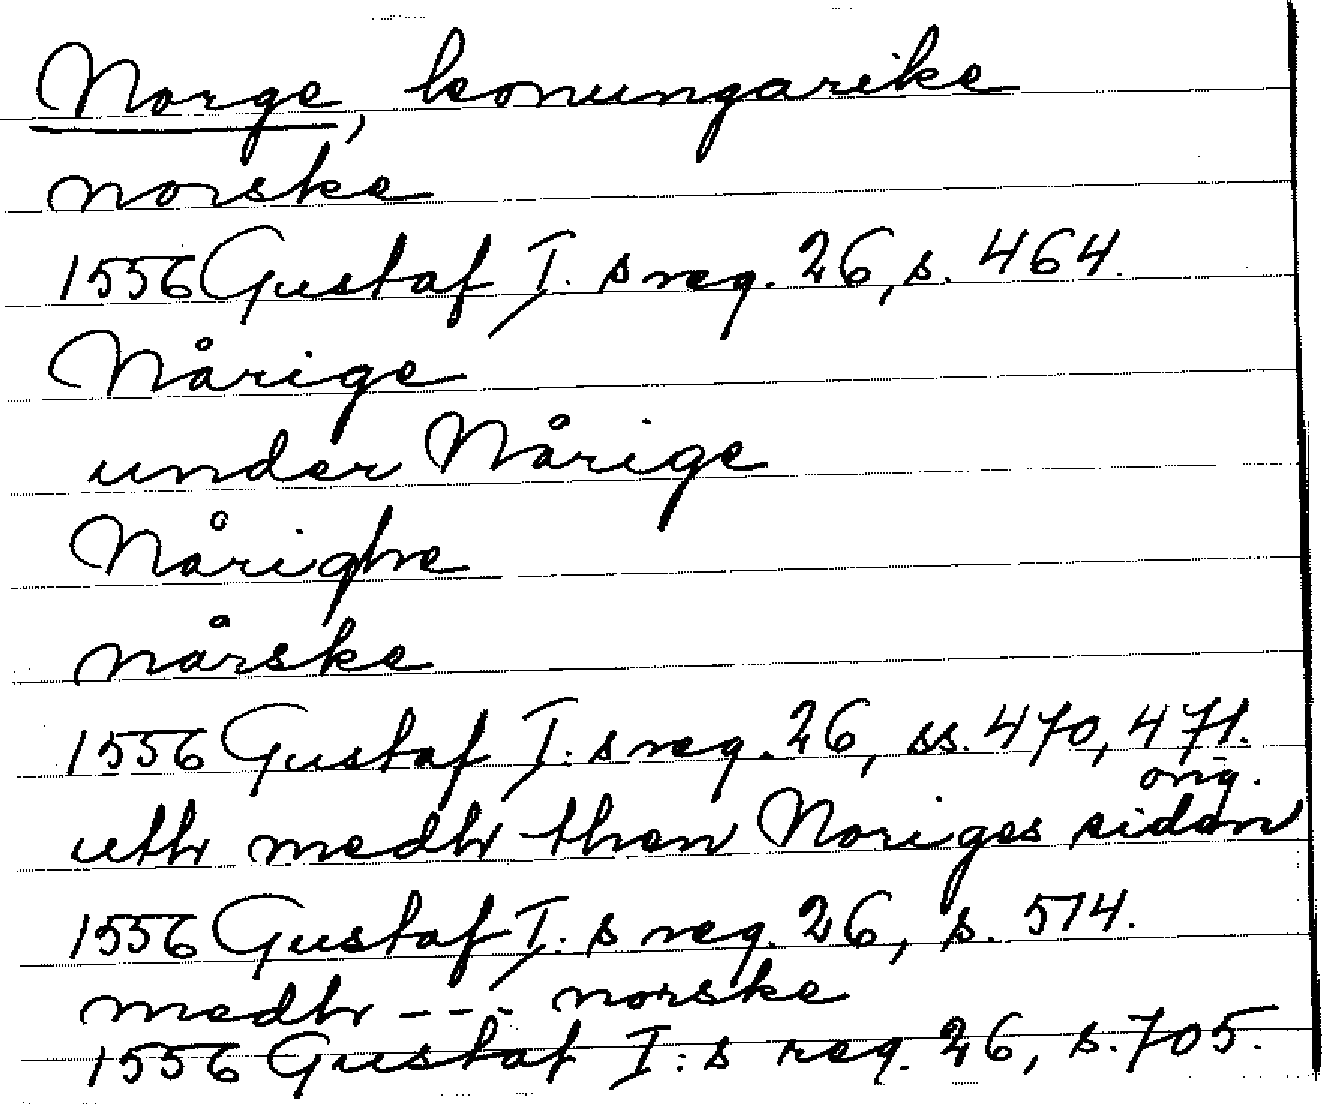 Norge, konungarike
norske
1556 Gustaf I. s reg. 26, s. 464.
Nårige
under Nårige
Nårighe
nårske
1556 Gustaf I: s reg. 26, ss. 470, 471.
orig.
uthr medhr then Noriges sidan
1556 Gustaf I: s reg. 26, s. 514.
medhr --- norske
1556 Gustaf I: s reg. 26, s. 705.